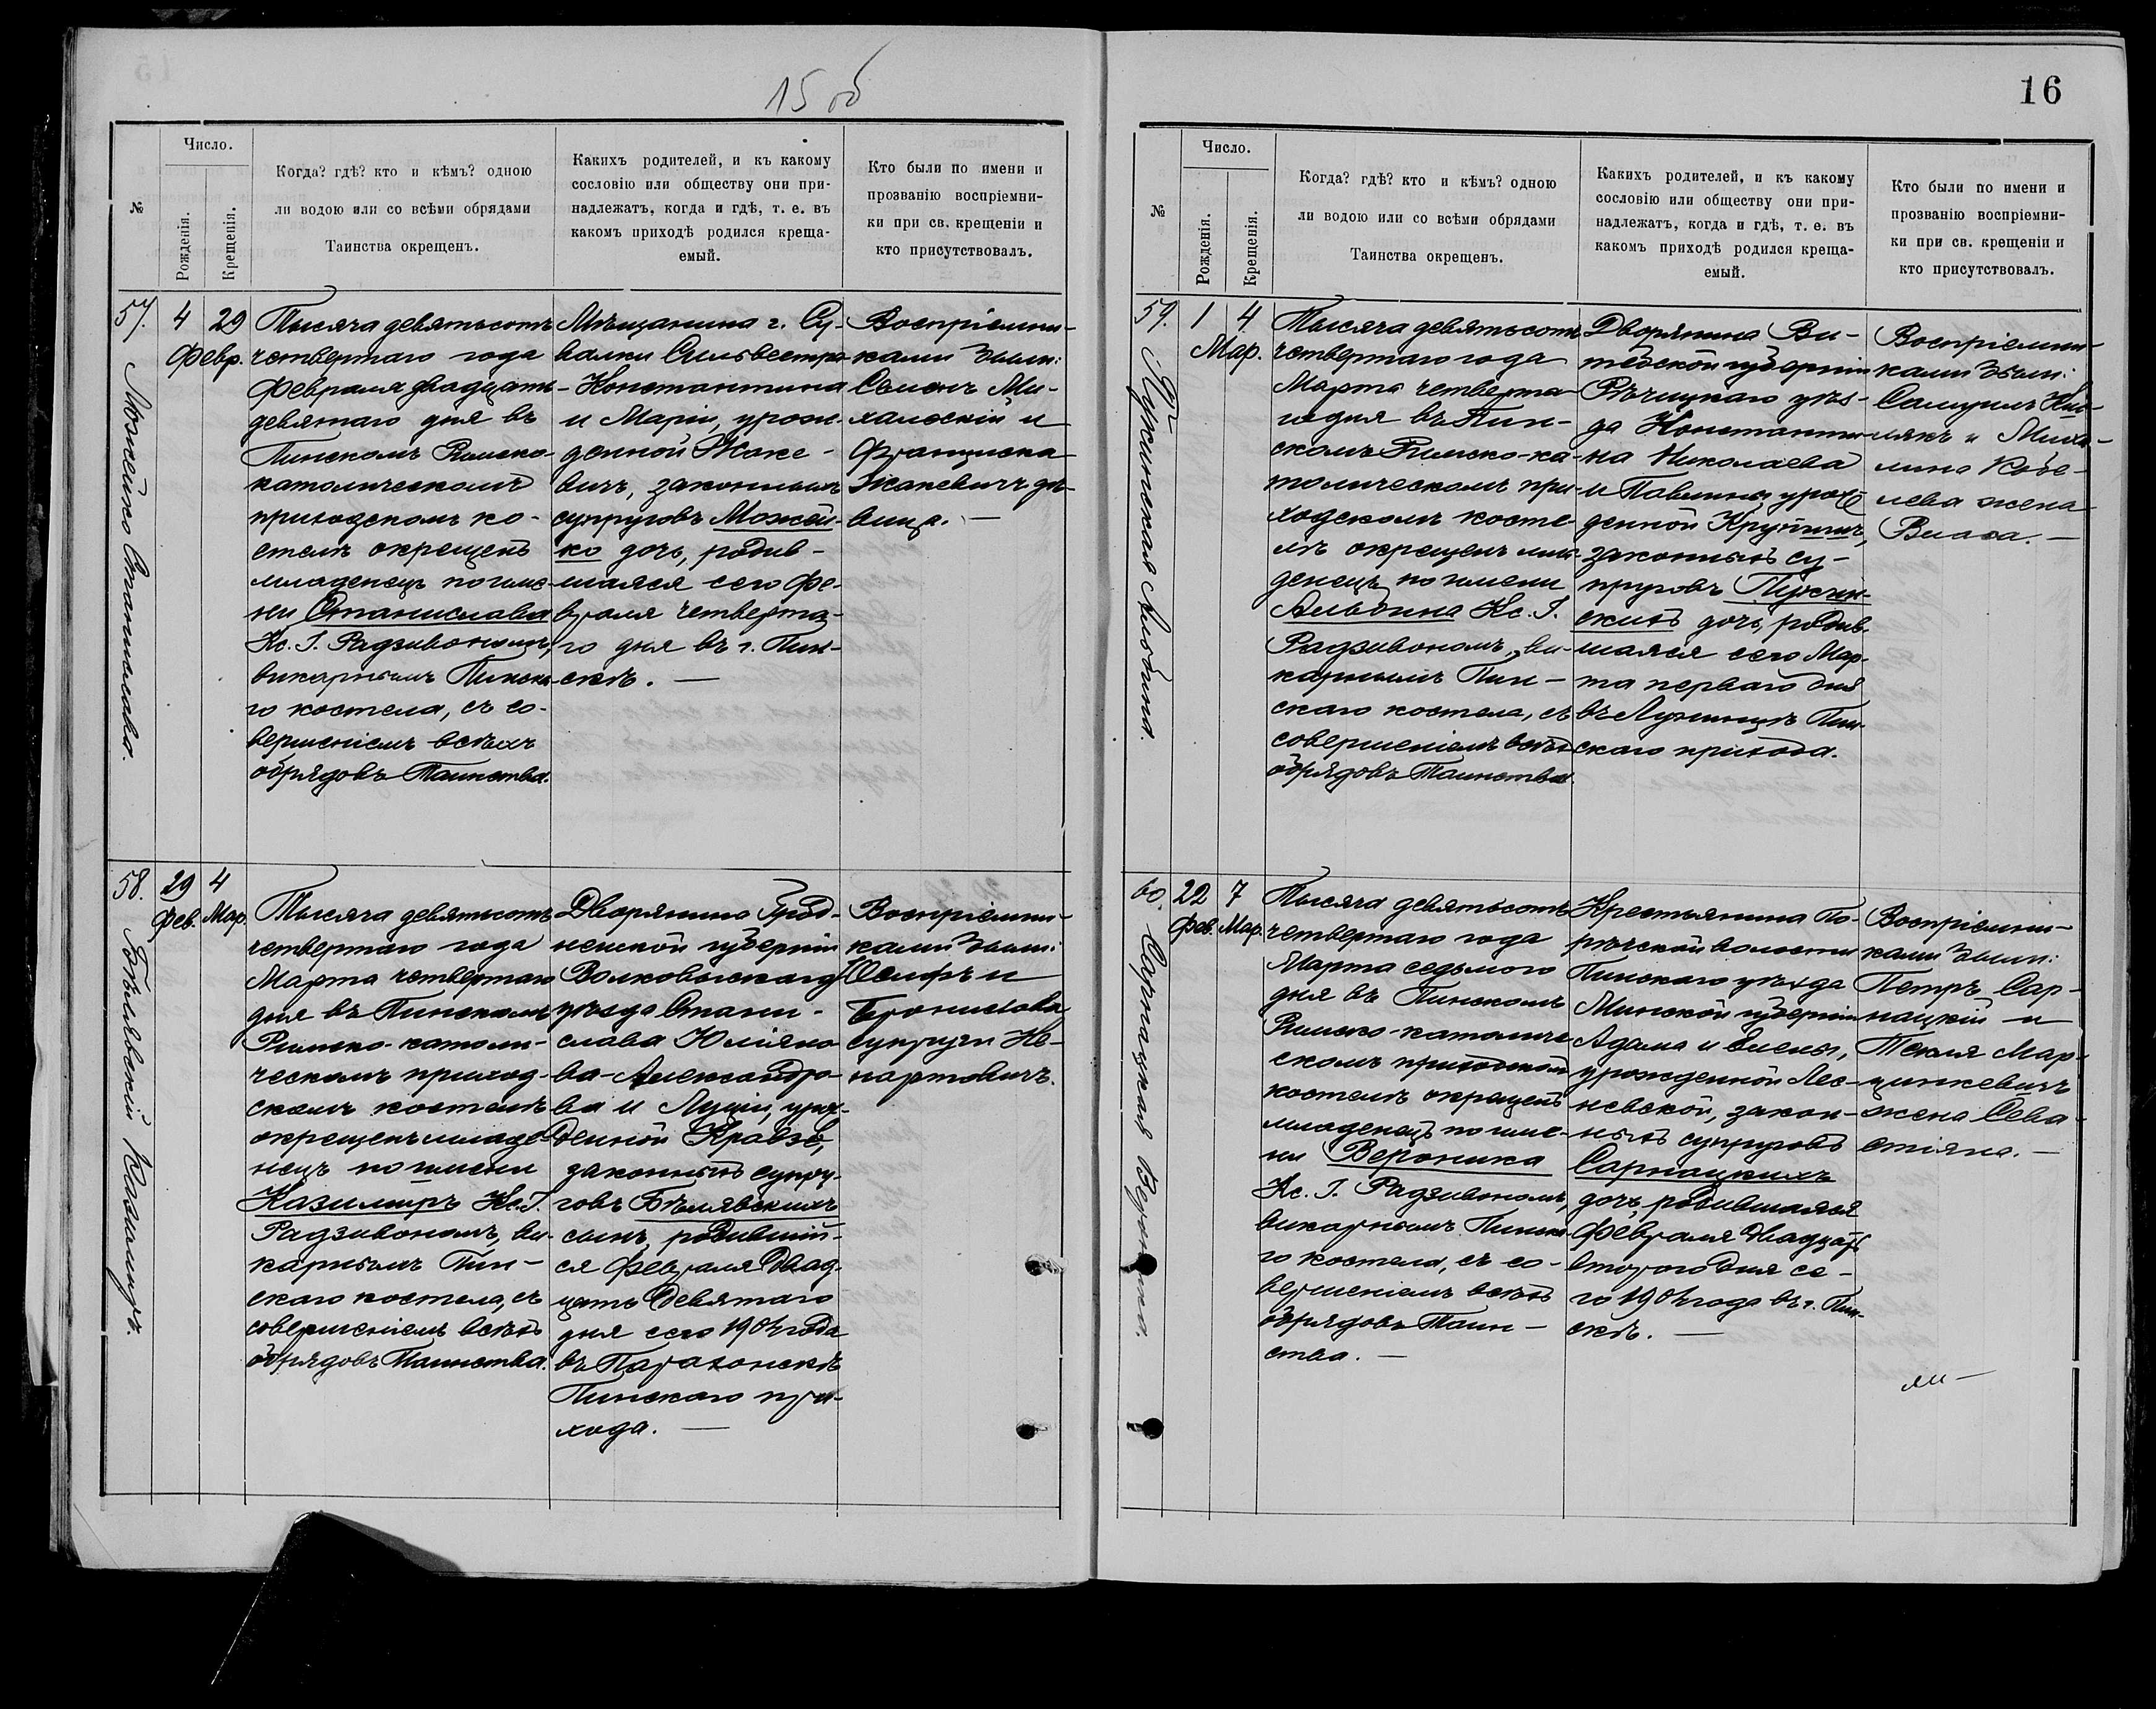 15 об
Число.
№
Рожденія.
Крещенія.
Когда? гдѣ? кто и кѣмъ? одною
ли водою или со всѣми обрядами
Таинства окрещенъ.
Какихъ родителей, и къ какому
сословію или обществу они при-
надлежатъ, когда и гдѣ, т. е. въ
какомъ приходѣ родился креща-
емый.
Кто были по имени и
прозванію воспріемни-
ки при св. крещеніи и
кто присутствовалъ.
57.
Можейко Станислава.
4 29
Февр.
Тысяча девятьсотъ
четвертаго года
Февраля двадцать
девятаго дня въ
Пинскомъ Римско-
католическомъ
приходскомъ ко-
стелѣ окрещенъ
младенецъ по име-
ни Станислава
Кс. І. Радзивономъ,
викарнымъ Пинска-
го костела, съ со-
вершеніемъ всѣхъ
обрядовъ Таинства.
Мѣщанина г. Су-
валки Сильвестра
- Константина
и Маріи, урож-
денной Жаке-
вичъ, законныхъ
супруговъ Можей-
ко дочь, родив-
шаяся сего Фе-
враля четверта-
го дня въ г. Пин-
скѣ. —
Воспріемни-
ками были:
Семенъ Ми-
хальскій и
Франциска
Жакевичъ дѣ-
вица. —
58.
Бѣлявскій Казимиръ.
29 4
Фев. Мар.
Тысяча девятьсотъ
четвертаго года
Марта четвертаго
дня въ Пинскомъ
Римско-католи-
ческомъ приход-
скомъ костелѣ
окрещенъ младе-
нецъ по имени
Казимиръ Кс. І.
Радзивономъ, ви-
карнымъ Пин-
скаго костела, съ
совершеніемъ всѣхъ
обрядовъ Таинства.
Дворянина Грод-
ненской губерніи
Волковыскаго
уѣзда Стани-
слава Юліяно-
ва-Александро-
ва и Луціи, урож-
денной Краузе,
законныхъ супру-
говъ Бѣлявскихъ
сынъ, родившій-
ся Февраля двад-
цать девятаго
дня сего 1904 года
въ Парахонскѣ
Пинскаго при-
хода. —
Воспріемни-
ками были:
Осифъ и
Бронислава
супруги
16
Число.
№
Рожденія.
Крещенія.
Когда? гдѣ? кто и кѣмъ? одною
ли водою или со всѣми обрядами
Таинства окрещенъ.
Какихъ родителей, и къ какому
сословію или обществу они при-
надлежатъ, когда и гдѣ, т. е. въ
какомъ приходѣ родился креща-
емый.
Кто были по имени и
прозванію воспріемни-
ки при св. крещеніи и
кто присутствовалъ.
59.
Пужинская Альбина.
1 4
Мар.
Тысяча девятьсотъ
четвертаго года
Марта четверта-
го дня въ Пин-
скомъ Римско-ка-
толическомъ при-
ходскомъ косте-
лѣ окрещенъ мла-
денецъ по имени
Альбина Кс. І.
Радзивономъ, ви-
карнымъ Пин-
скаго костела, съ
совершеніемъ всѣхъ
обрядовъ Таинства.
Дворянина Ви-
тебской губерніи
Рѣчицкаго уѣз-
да Константи-
на Николаева
и Павлины урож-
денной
законныхъ су-
пруговъ Пужин-
скихъ дочь, родив-
шаяся сего Мар-
та перваго дня
въ Лунинцѣ Пин-
скаго прихода.
Воспріемни-
ками были:
Самуилъ
и Миха-
лина Кобе-
лева жена
60.
Сарнацкая Вероника.
22 7
Фев. Мар.
Тысяча девятьсотъ
четвертаго года
Марта седьмого
дня въ Пинскомъ
Римско-католиче-
скомъ приходскомъ
костелѣ окрещенъ
младенецъ по име-
ни Вероника
Кс. І. Радзивономъ,
викарнымъ Пинска-
го костела, съ со-
вершеніемъ всѣхъ
обрядовъ Таин-
ства. —
Крестьянина По-
рѣчской волости
Пинскаго уѣзда
Минской губерніи
Адама и Елены,
урожденной Лес-
невской, закон-
ныхъ супруговъ
Сарнацкихъ
дочь, родившаяся
Февраля двадцать
второго дня се-
го 1904 года въ г. Пин-
скѣ. —
Воспріемни-
ками были:
Петръ Сар-
нацкій и
Текля Мар-
цинкевичъ
жена Сева-
стіяна. —